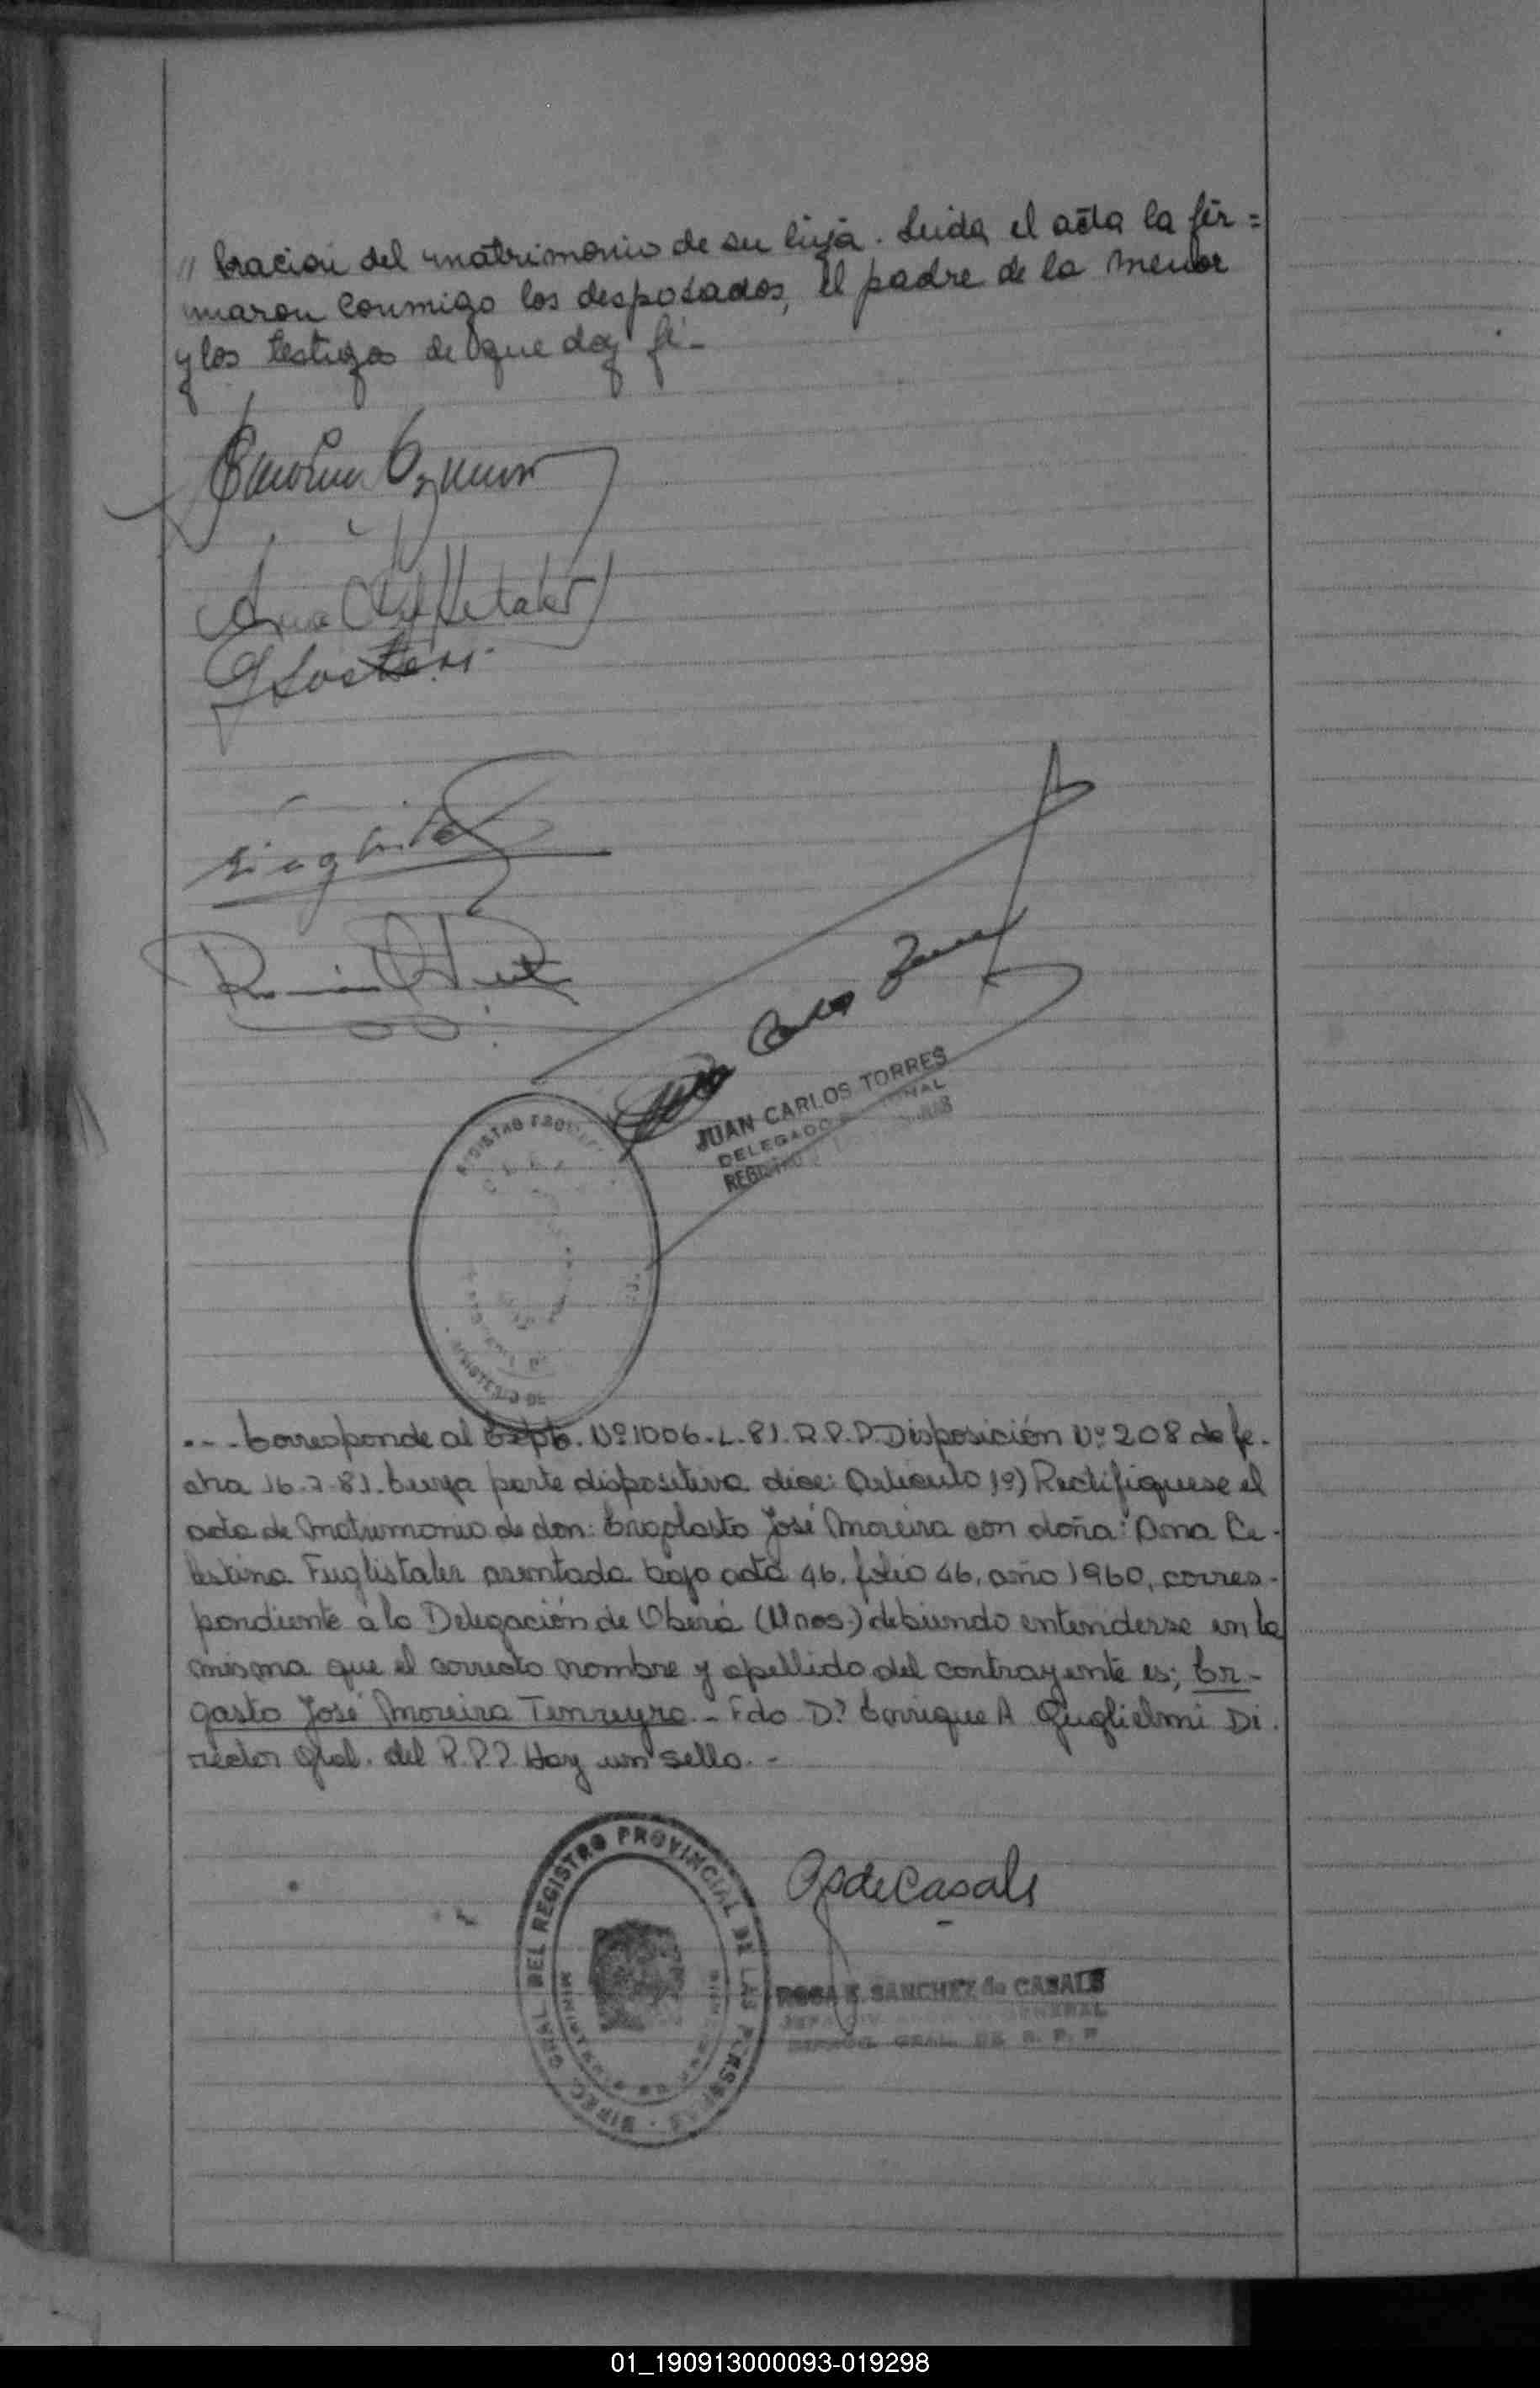 // bracion del matrimonio de su hija. Leida el acta la fir=
maron conmigo los desposados, el padre de la menor
y los testigos de que doy fé-
JUAN CARLOS TORRES
DELEGADO
... Corresponde al Expte. Nº 1006-L-81. R.P.P. Disposición Nº 208 de fe-
cha 16-7-81. Cuya parte dispositiva dice: Artículo 1º) Rectifiquese el
acta de Matrimonio de don: José Moreira con doña: Ana Ce-
lestina Fuglistaler asentada bajo acta 46, folio 46, año 1960, corres-
pondiente a la Delegación de Oberá (Mnes.) debiendo entenderse en la
misma que el correcto nombre y apellido del contrayente es; Er-
gasto José Moreira Tenreyro.- Fdo D? Enrique A Guglielmi Di-
rector Gral. del R.P.P. Hay un sello.-
DIREC. GRAL. DEL REGISTRO PROVINCIAL DE LAS PERSONAS
OpdeCasals
ROSA E. SANCHEZ de CASALS
GENERAL
GRAL. DE R. P. P.
01_190913000093-019298